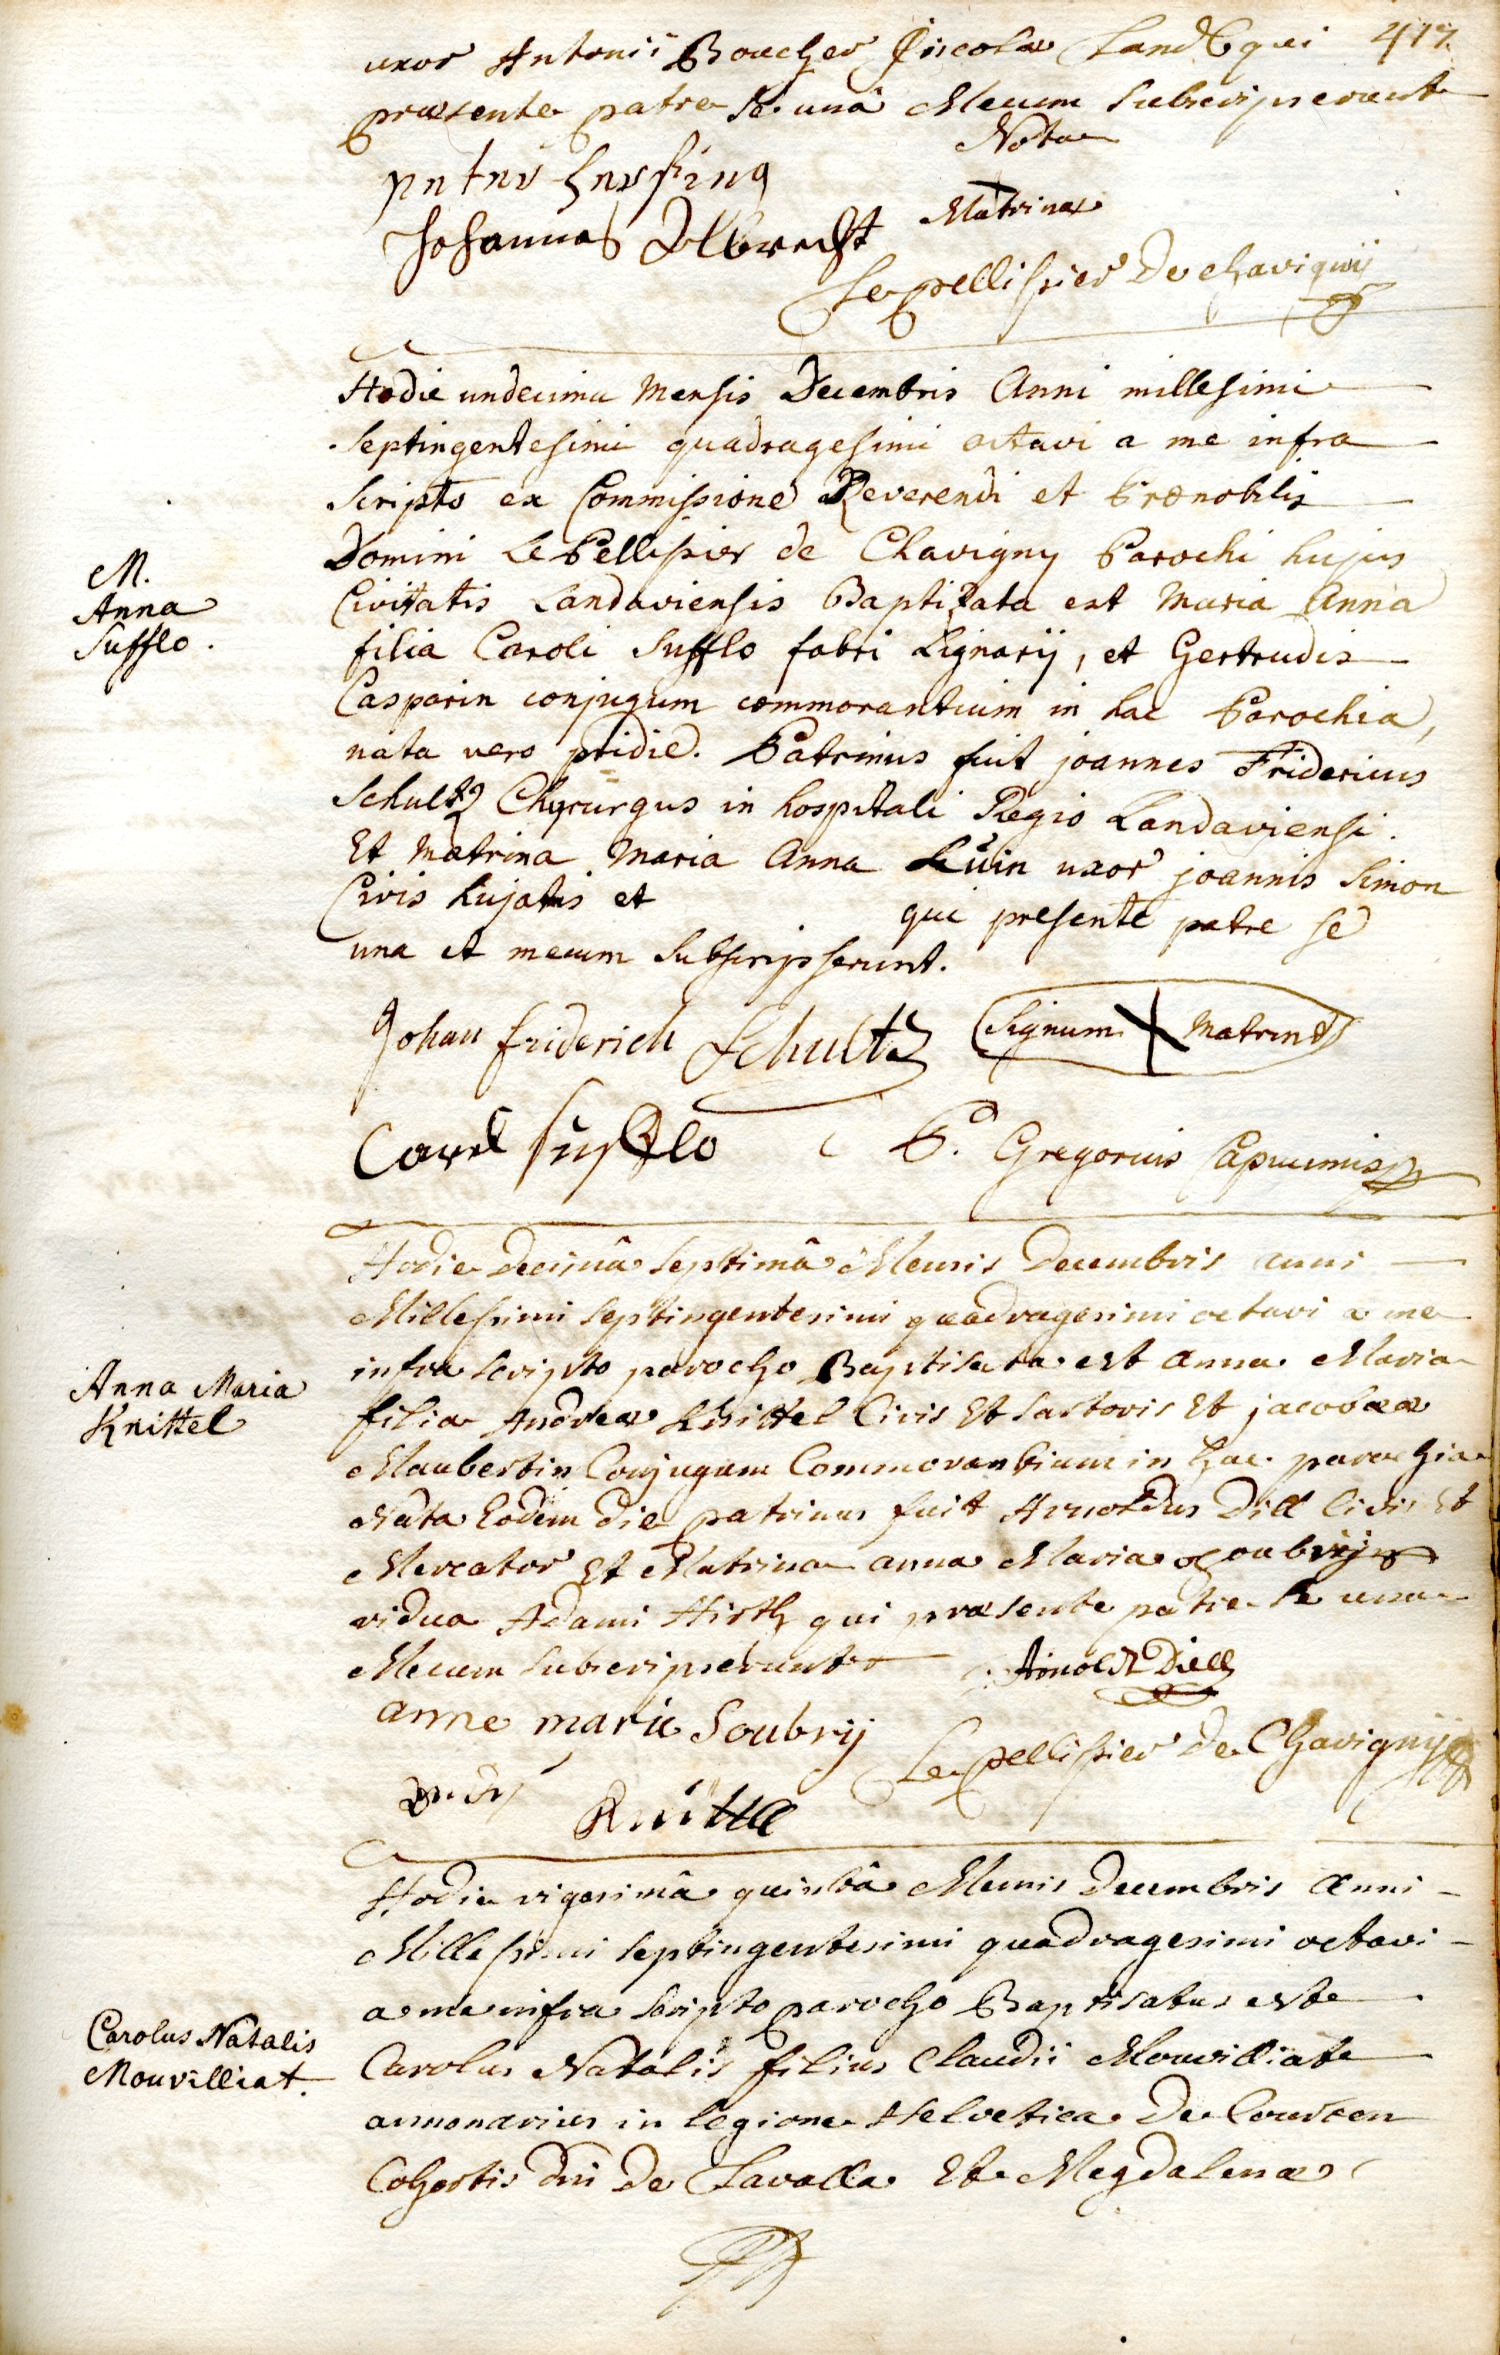 417.
uxor Antonii Boucher Incolæ Land. qui
præsente patre se unâ Mecum subscripserunt
Nota
Matrinæ
Johannes Albrecht
Le pellissier De chavignÿ
Hodie undecima Mensis Decembris Anni millesimi
septingentesimi quadragesimi octavi a me infra
scripto ex Commissione Reverendi et Prænobilis
Domini Le Pellissier de Chavigny Parochi hujus
Civitatis Landaviensis Baptizata est Maria Anna
M.
Anna
Sufflo.
filia Caroli Sufflo fabri Lignarij, et Gertrudis
Casparin conjugum commorantium in hac Parochia,
nata vero pridie. Patrinus fuit joannes Fridericus
Schultz Chyrurgus in hospitali Regio Landaviensi.
Et Matrina Maria Anna uxor joannis Simon
Civis hujatis et qui presente patre se
una et mecum Subscripserunt.
Johan friderich Schultz
Signum X Matrinæ
Carel Sufflo
P. Gregorius Capucinus
Hodie Decimâ septimâ Mensis Decembris anni
Millesimi septingentesimi quadragesimi octavi a me
infra scripto parocho Baptisata est anna Maria
Anna Maria
Knittel
filia Andreæ Knittel Civis Et sartoris Et jacobææ
Maubertin Conjugum Commorantium in hac parochia
Nata Eodem die patrinus fuit Arnoldus Dill Civis Et
Mercator Et Matrina anna Maria Soubrij
vidua Adami Hirth qui præsente patre se una
Mecum subscripserunt
Arnoldt Diell
anne marie Soubrij
Le pellissier De Chavignij
Knittel
Hodie vigesimâ quintâ Mensis Decembris Anni
Millesimi septingentesimi quadragesimi octavi
a me infra scripto parocho Baptisatus est
Carolus Natalis
Mouvilliat.
Carolus Natalis filius Claudii Mouvilliat
annonarius in legione Helvetica De Courten
Cohortis dni De Lavalla Et Megdalenæ